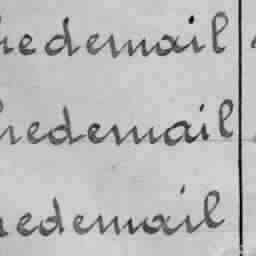 hedemail
hedemail
nedemail